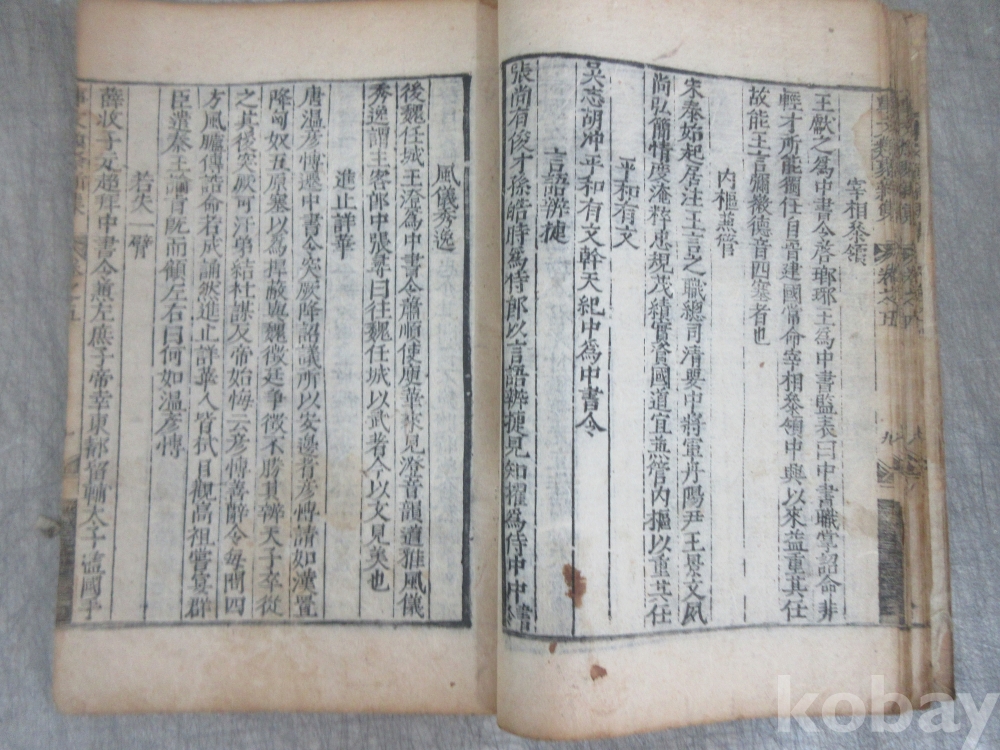 宰相參領
王獻之爲中書令啓瑯琊王爲中書監表曰中書職掌詔命非
輕才所能獨任自晉建國常命宰相參領中興以來益重其任
故能王言彌徽德音四塞者也
內樞兼管
宋泰始起居注王言之職總司清要中將軍丹陽尹王景文夙
尚弘簡情度淹粹忠規茂績實管國道宜兼管內樞以重其任
平和有文
吳志胡冲平和有文幹天紀中爲中書令
言語辨捷
張尚有俊才孫皓時爲侍郎以言語辨捷見知擢爲侍中中書令
風儀秀逸
後魏任城王澄爲中書令蕭順使庾華來見澄音韻遒雅風儀
秀逸謂主客郎中張彛曰往魏任城以武著今以文見美也
進止詳華
唐溫彦愽遷中書令突厥降詔議所以安邊者彦愽請如漢置
降匈奴五原塞以爲捍蔽與魏徵廷争徵不勝其辨天子卒從
之其後突厥可汗弟結社謀反帝始悔云彦愽善辭令每問四
方風臚傳詔命若成誦然進止詳華人皆拭目觀高祖嘗宴群
臣遣秦王諭旨既而顧左右曰何如溫彦愽
若失一臂
薛收子元超拜中書令兼左庶子帝幸東都留輔太子監國手
kobay